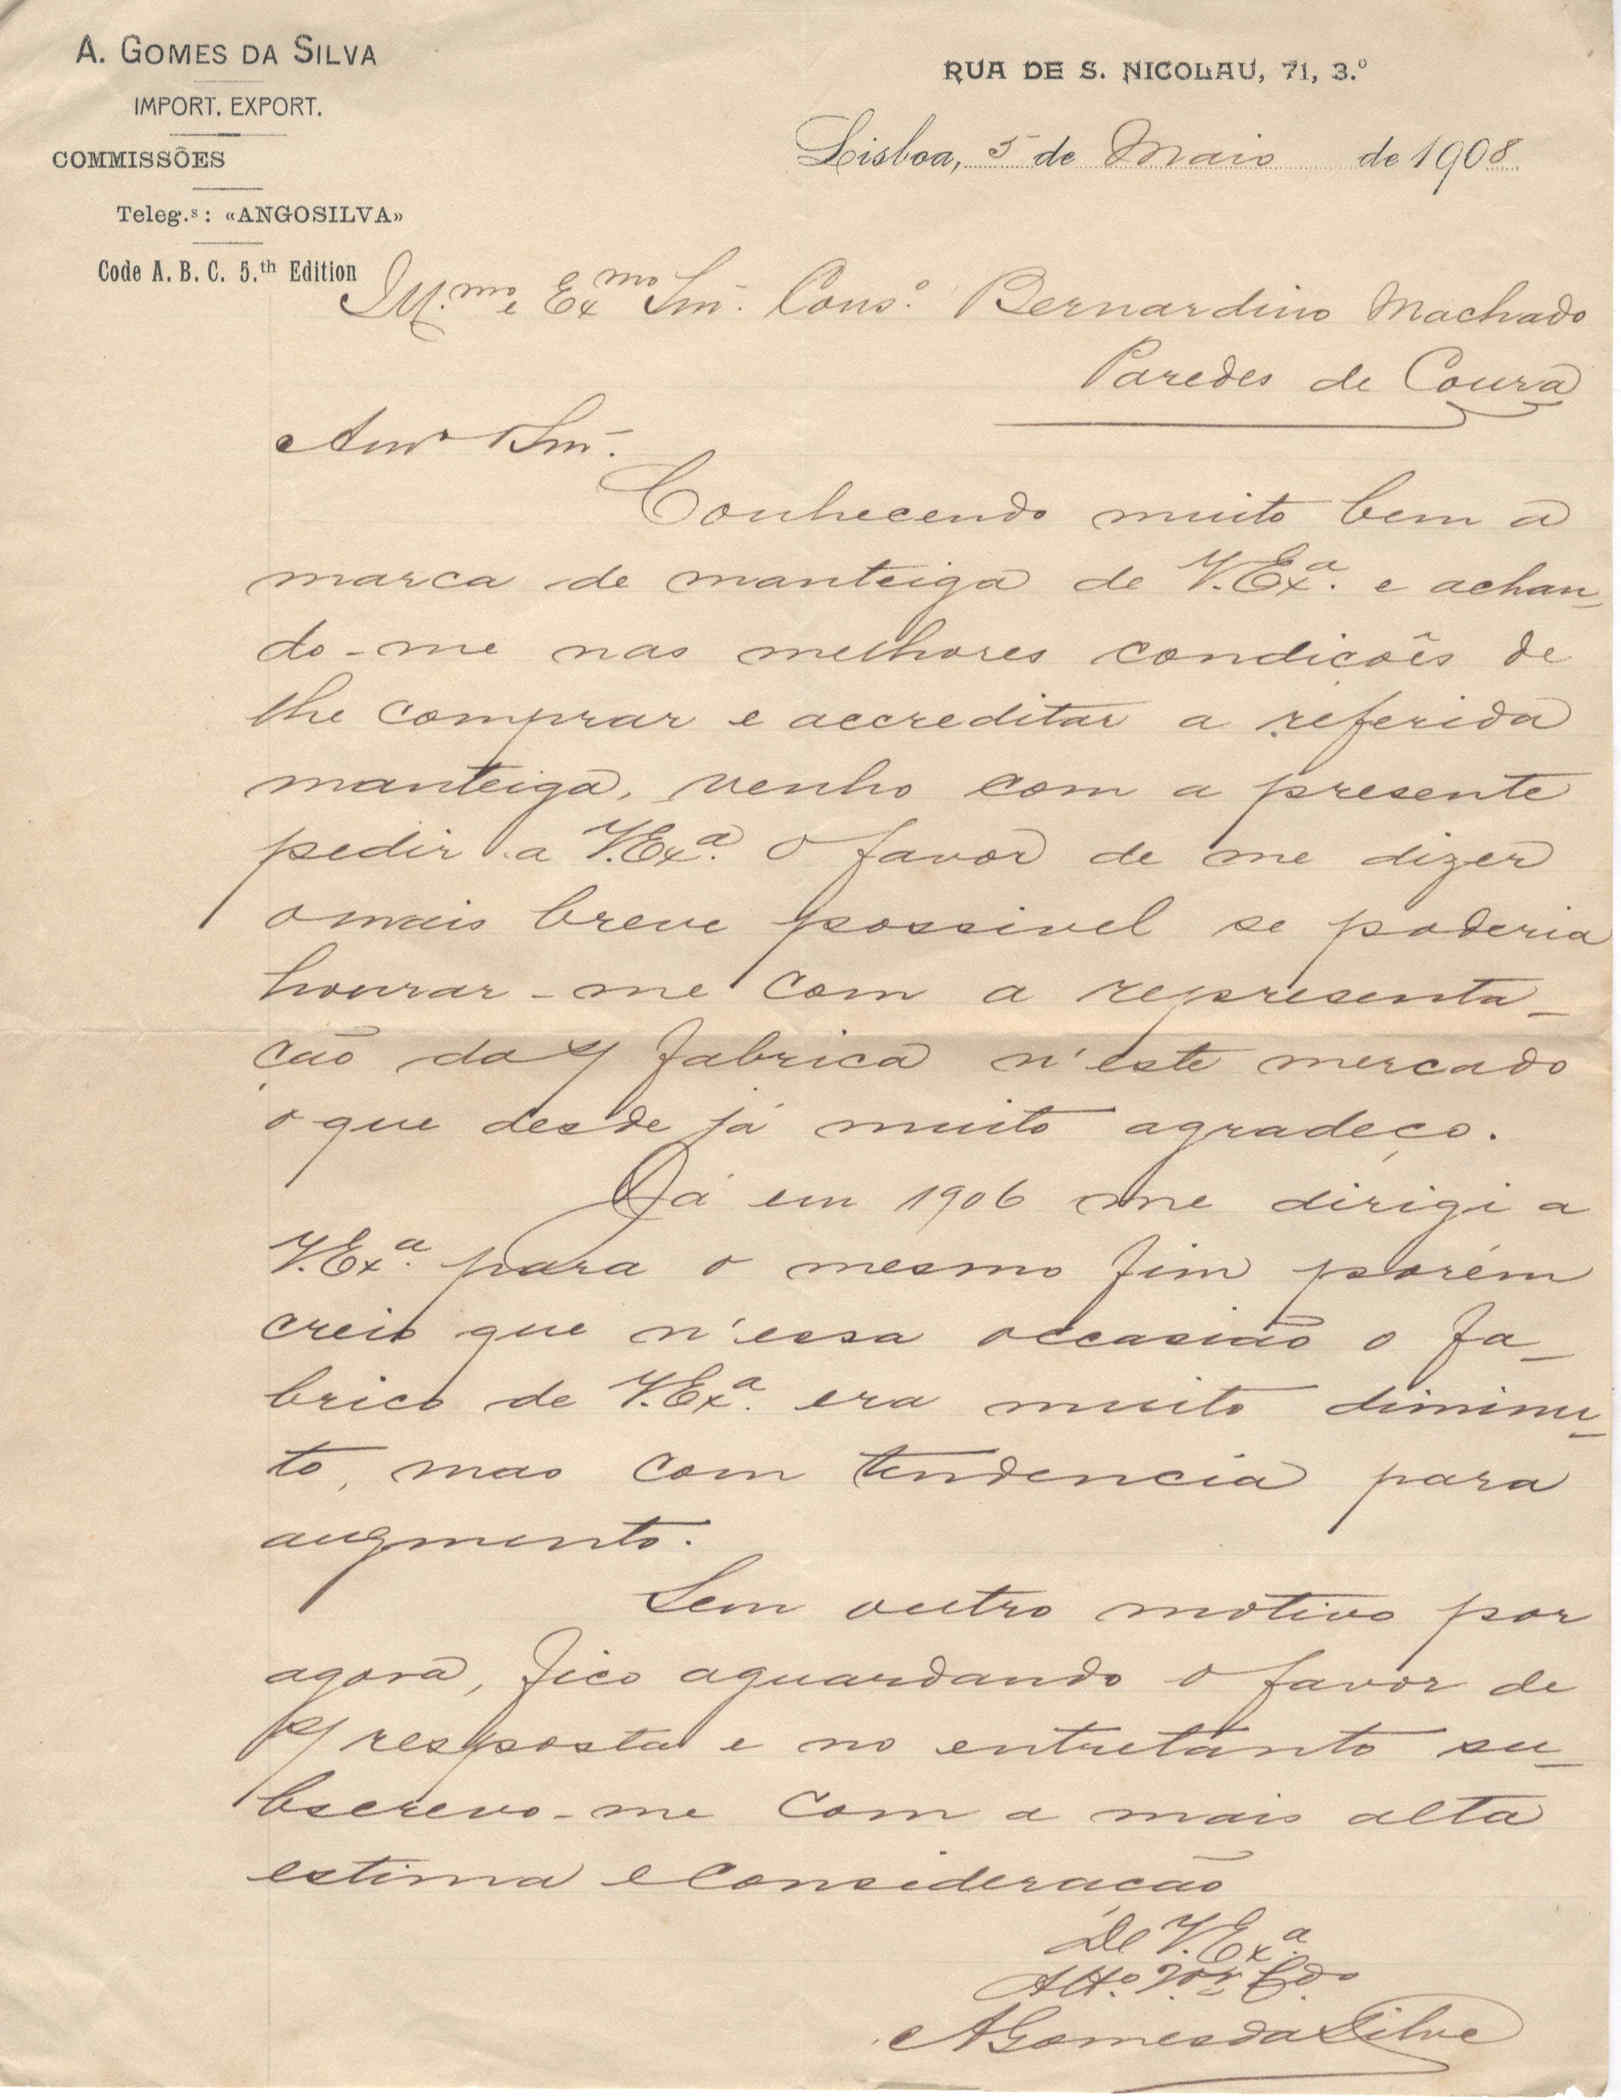 A. GOMES DA SILVA
IMPORT. EXPORT.
COMMISSÕES
Teleg.s: «ANGOSILVA»
Code A. B. C. 5.th Edition
RUA DE S. NICOLAU, 71, 3.º
Lisboa, 5 de Maio de 1908
Ill.mo e Exmo Snr. Cons.o Bernardino Machado
Paredes de Coura
Amo e Snr.
Conhecendo muito bem a
marca de manteiga de V. Exa. e achan-
do-me nas melhores condições de
lhe comprar e accreditar a referida
manteiga, venho com a presente
pedir a V. Exa. o favor de me dizer
o mais breve possivel se poderia
honrar-me com a representa-
ção da s/ fabrica n'este mercado
o que desde já muito agradeço.
Já em 1906 me dirigi a
V. Exa. para o mesmo fim porém
creio que n'essa occasião o fa-
brico de V. Exa. era muito diminu-
to, mas com tendencia para
augmento.
Sem outro motivo por
agora, fico aguardando o favor de
s/ resposta e no entretanto su-
bscrevo-me com a mais alta
estima e consideração
De V. Exa.
Atto. Vor. Cdo.
A Gomes da Silva